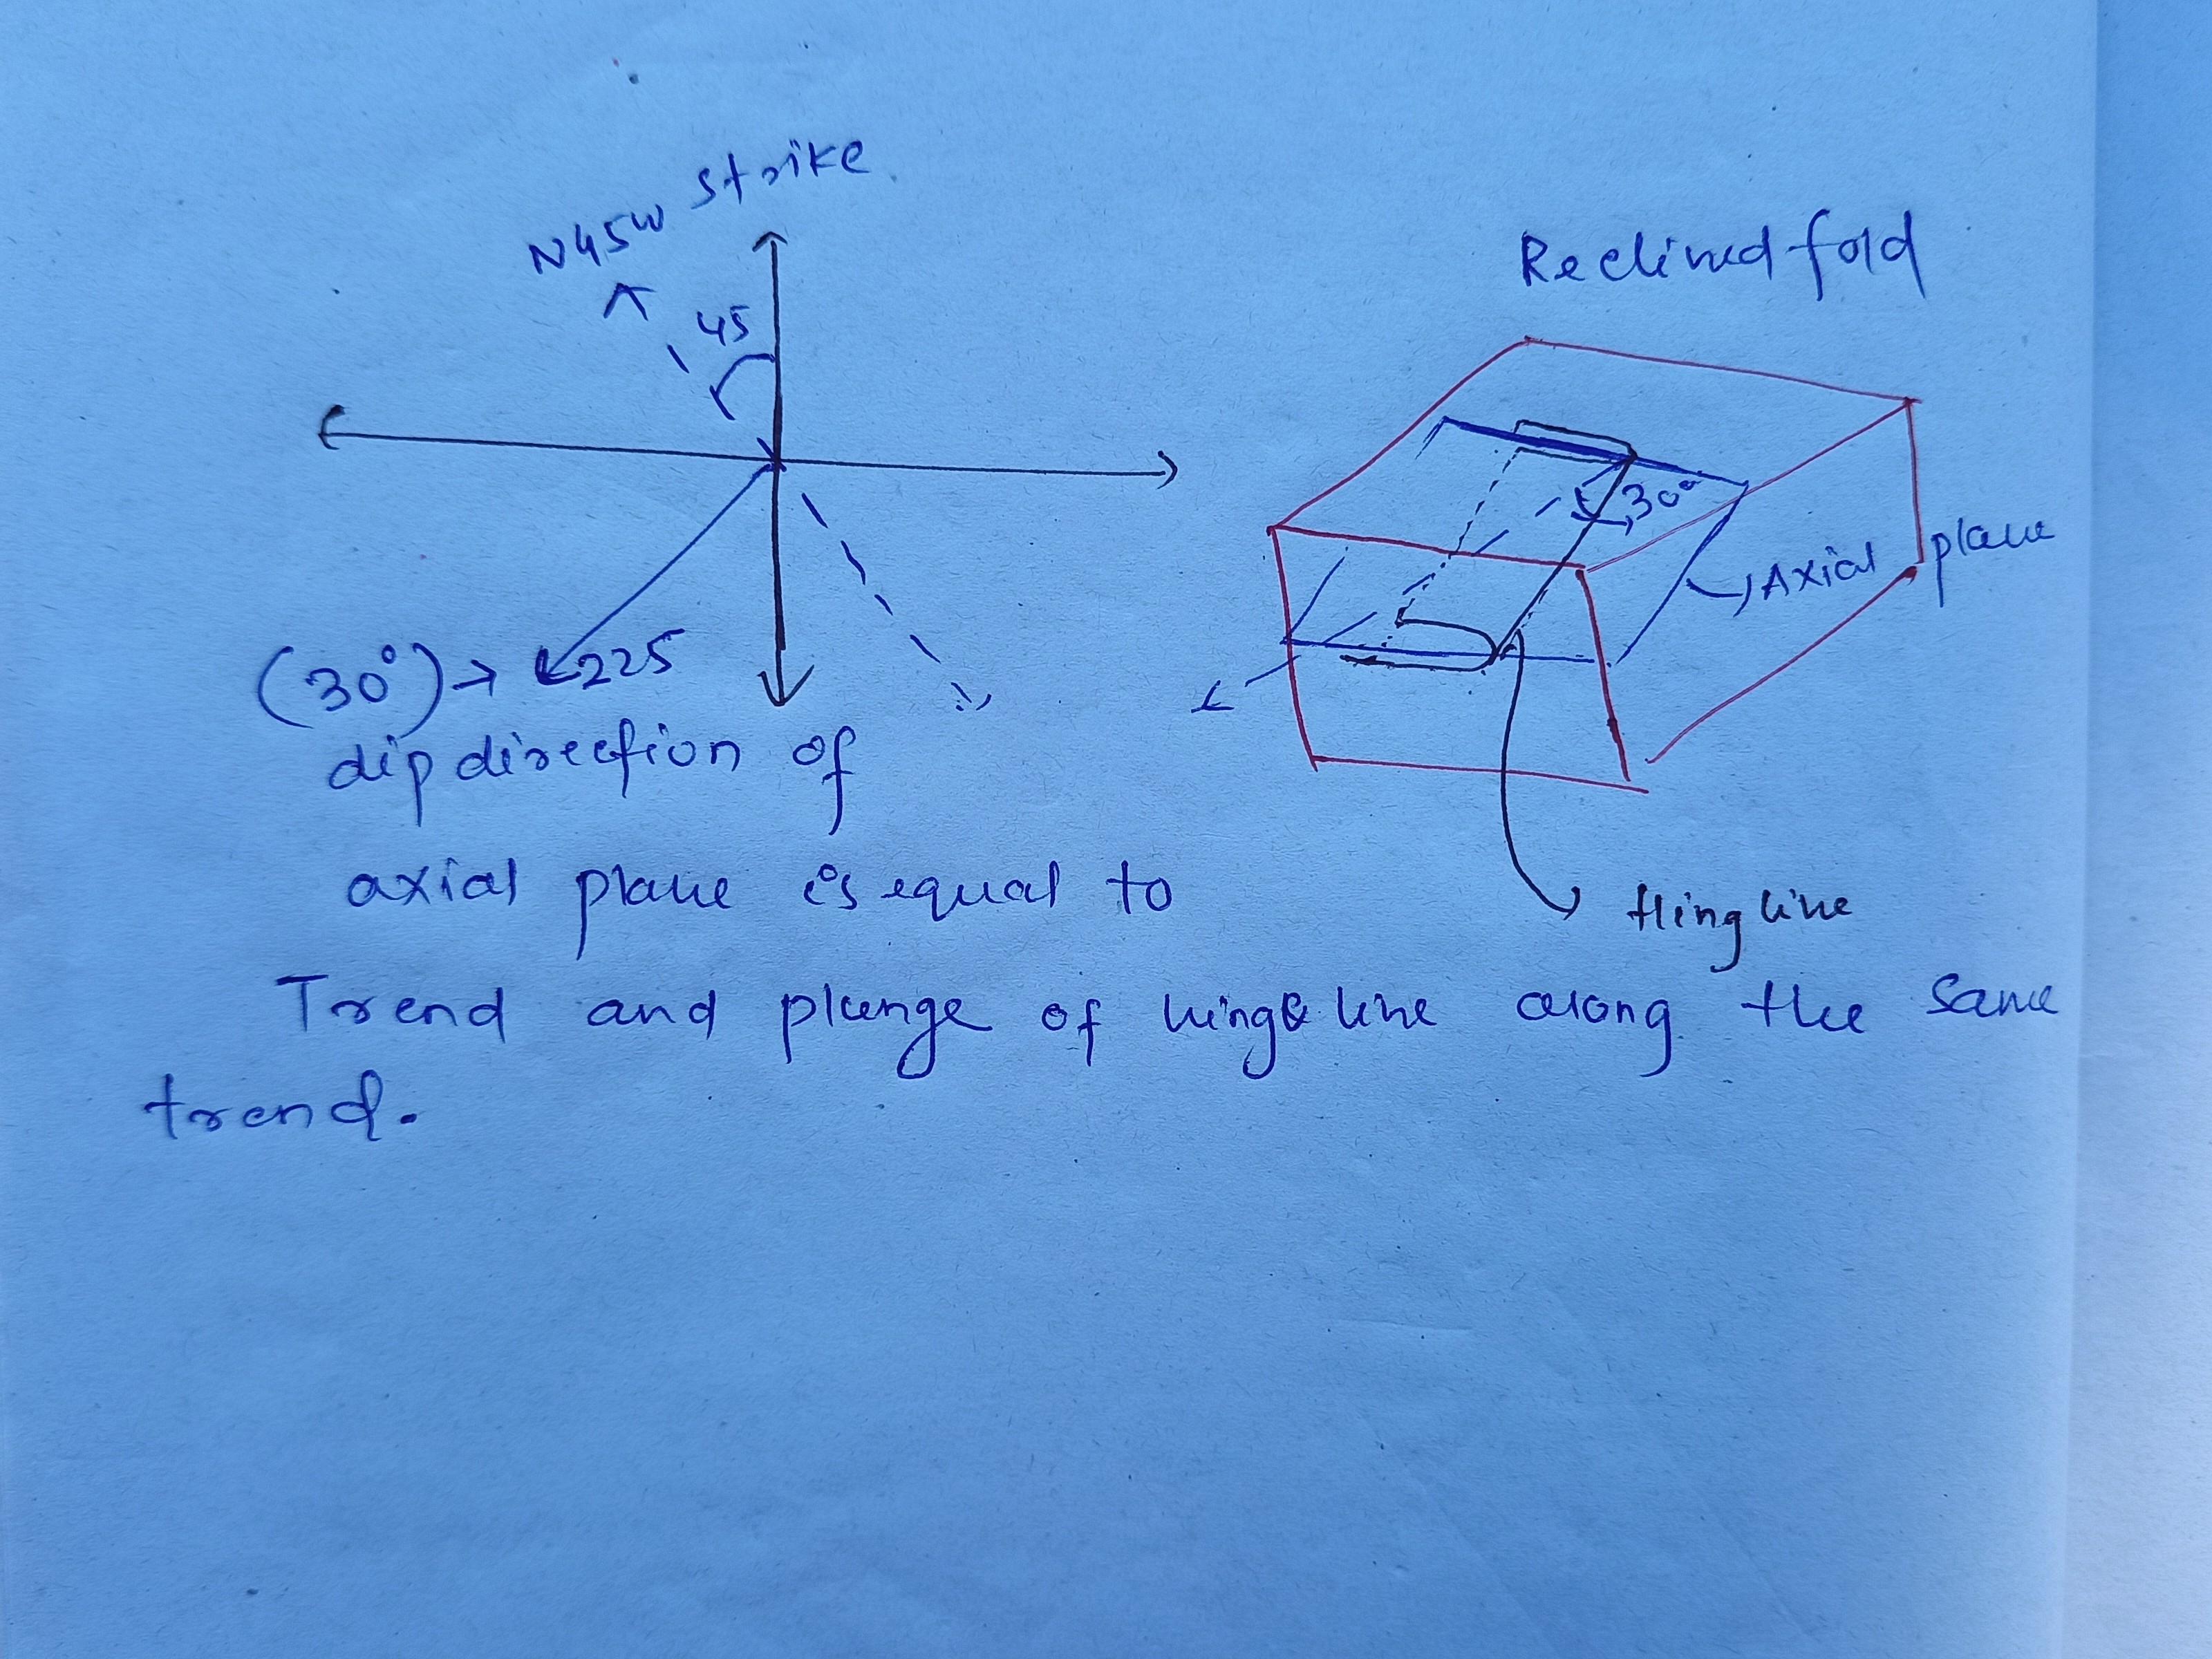 N45W strike
45
(30°)→ 225
dip direction of
axial plane is equal to
Trend and plunge of hinge line along the same
trend.
Reclined fold
30°
Axial plane
Hing line